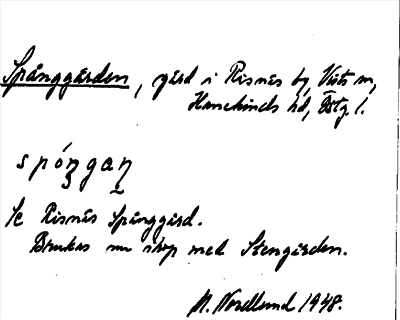 Spånggården, gård i Risnäs by, Vists sn,
Hanekinds hd, Östg. l.
spóŋgaṇ
Se Risnäs Spånggård.
Brukas nu ihop med Stengården.
M. Nordlund 1948.